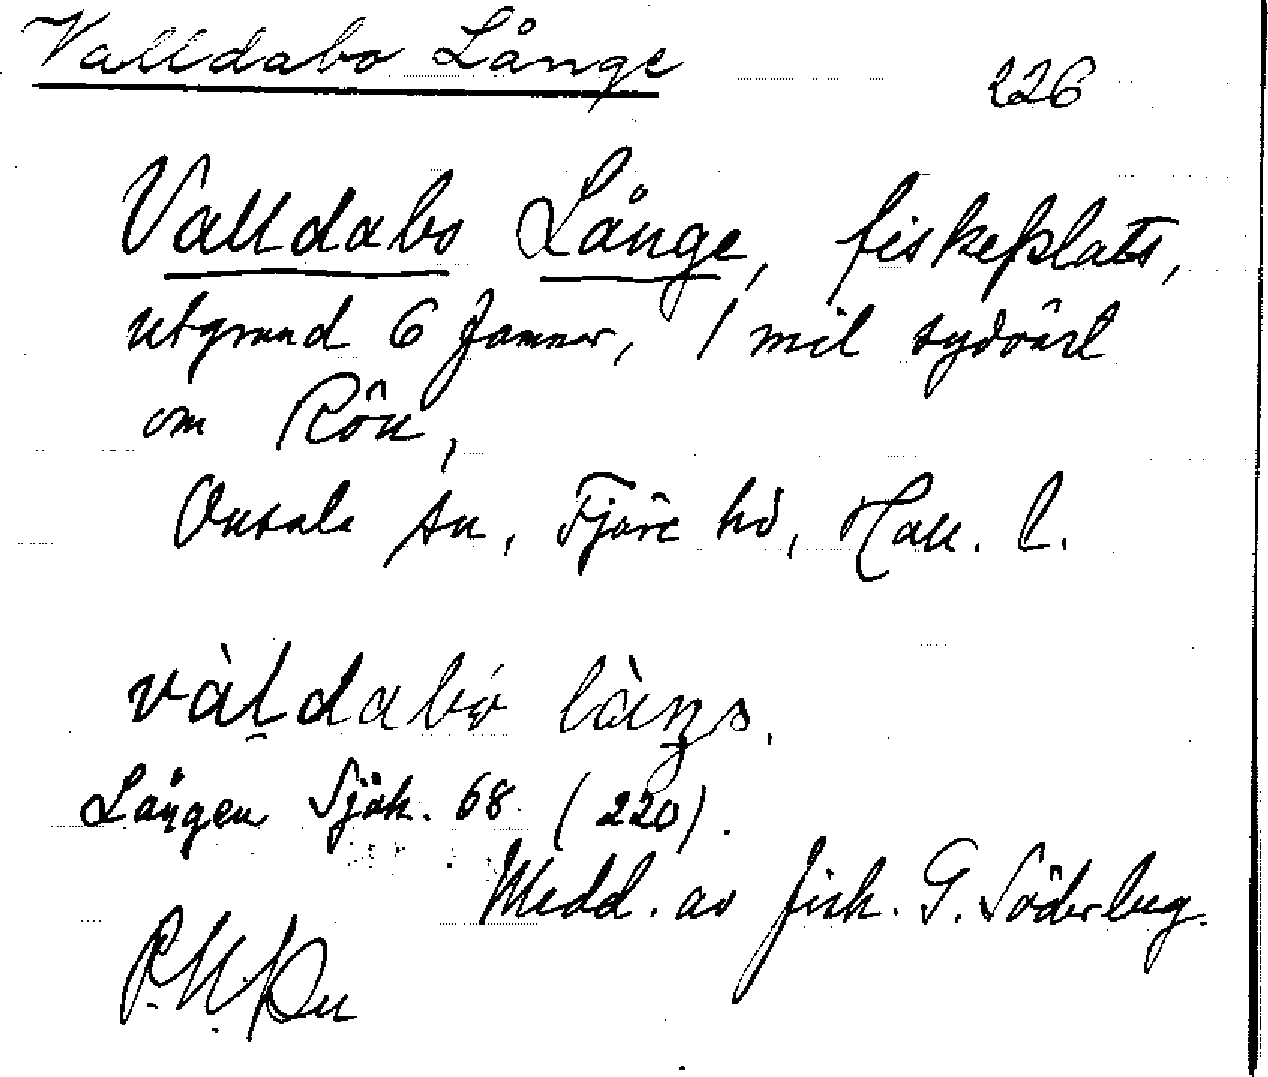 Valldabo Långe
226
Valldabo Långe, fiskeplats,
utgrund 6 famnar, 1 mil sydväst
om Rön,
Onsala sn, Fjäre hd, Hall. l.
vàldabo làŋs.
Lången Sjök. 68 (220).
Medd. av fisk. G. Söderberg.